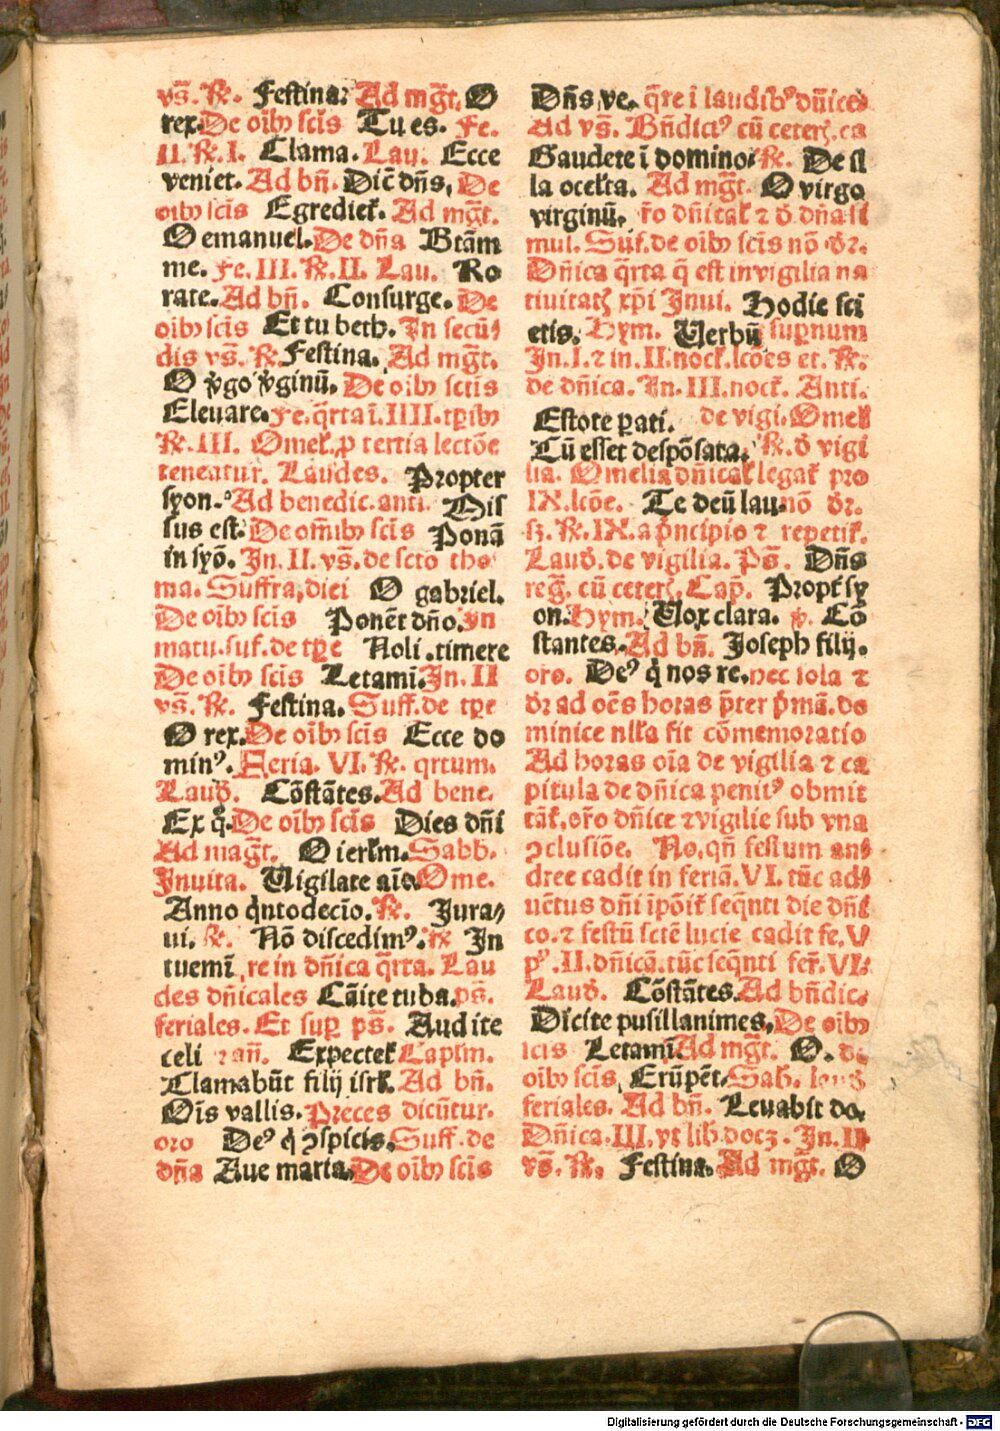 vs̄. ℟. Festina. Ad mg̅t. O
rex. De oīb⁹ scīs Tu es. Fe.
II. ℟. I. Clama. Lau. Ecce
veniet. Ad bn̄. Dic̄ dn̄s, De
oīb⁹ scīs Egrediet᷑. Ad mg̅t.
O emanuel. De dn̄a Btām
me. Fe. III. ℟. II. Lau. Ro
rate. Ad bn̄. Consurge. De
oīb⁹ scīs Et tu beth. In secū
dis vs̄. ℟. Festina. Ad mg̅t.
O v̄go v̄ginū. De oīb⁹ sctīs
Eleuare. Fe. q̄rta ī. IIII. tp̄ib⁹
℟. III. Omel̓. ꝑ tertia lectōe
teneatur. Laudes. Propter
syon. Ad benedic. anti. Mis
sus est. De om̄ib⁹ scīs Ponā
in syō. In. II. vs̄. de scto tho
ma. Suffra. diei O gabriel.
De oīb⁹ scīs Ponēt dn̄o. In
matu. suf. de tp̄e Noli. timere
De oīb⁹ scīs Letami. In. II
vs̄. ℟. Festina. Suff. de tp̄e
O rex. De oīb⁹ scīs Ecce do
min⁹. Feria. VI. ℟. qrtum.
Laud̓. Cōstātes. Ad bene.
Ex q̊. De oīb⁹ scīs Dies dn̄i
Ad mag̅t. O ierl̓m. Sabb.
Inuita. Vigilate aīo. Ome.
Anno q̇ntodecīo. ℟. Jura⸗
ui. ℟. Nō discedim⁹. ℟ In
tuemī, re in dn̄ica q̄rta. Lau
des dn̄icales Cāite tuba. ps̄.
feriales. Et suꝑ ps̄. Audite
celi ꝛ añ. Expectet᷑ Capl̓m.
Clamabūt filij isrl̓. Ad bn̄.
Oīs vallis. Preces dicūtur.
oro De⁹ q̇ ꝯspicis. Suff. de
dn̄a Aue maria. De oīb⁹ scīs
Dn̄s ve. q̄re ī laudib⁹ dn̄ice
Ad vs̄. Bn̄dict⁹ cū ceterꝭ. ca
Gaudete ī domino. ℟. De il
la occl̓ta. Ad mg̅t. O virgo
virginū. r̄o dn̄ical̓ ꝛ d̓ dn̄a si
mul. Suf. de oīb⁹ scīs nō d̓r.
Dn̄ica q̄rta q̄ est in vigilia na
tiuitatꝭ xp̄i Inui. Hodie sci
etis. Hym. Verbū supernum
In. I. ꝛ in. II. noct̓. lcōes et. ℟.
de dn̄ica. In. III. noct̓. Anti.
Estote ꝑati. de vigi. Omel̓
Cū esset despōsata. ℟. d̓ vigi
lia. Omelia dn̄ical̓ legat᷑ pro
IX. lcōe. Te deū lau. nō d̓r.
sꝫ. ℟. IX. a p̄ncipio ꝛ repetit᷑.
Laud̓. de vigilia. Ps̄. Dn̄s
reg̅. cū ceterꝭ. Cap̄. Propt̓ sy
on. Hym. Vox clara. ℣. Cō
stantes. Ad bn̄. Joseph fili.
oro. De⁹ q̇ nos re. nec sola ꝛ
d̓r ad oēs horas p̄ter p̄mā. do
minice nl̓la fit cōmemoratio
Ad horas oīa de vigilia ꝛ ca
pitula de dn̄ica penit⁹ obmit
tāt᷑. or̄o dn̄ice ꝛ vigilie sub vna
ꝯclusiōe. No. qn̄ festum an⸗
dree cadit in feria. VI. tūc ad⸗
uētus dn̄i īpōit᷑ seq̄nti die dn̄i
co. ꝛ festū scte lucie cadit fe. V
p⁹. II. dn̄icā. tūc seq̄nti fer̄. VI.
Laud̓. Cōstātes. Ad bn̄dic.
Dicite pusillanimes. De oīb⁹
scīs Letami. Ad mg̅t. O. de
oīb⁹ scīs, Erūpēt. Sab. laud̓
feriales. Ad bn̄. Leuabit do.
Dn̄ica. III. vt lib. docꝫ. In. II
vs̄. ℟. Festina. Ad mg̅t. O
Digitalisierung gefördert durch die Deutsche Forschungsgemeinschaft - DFG